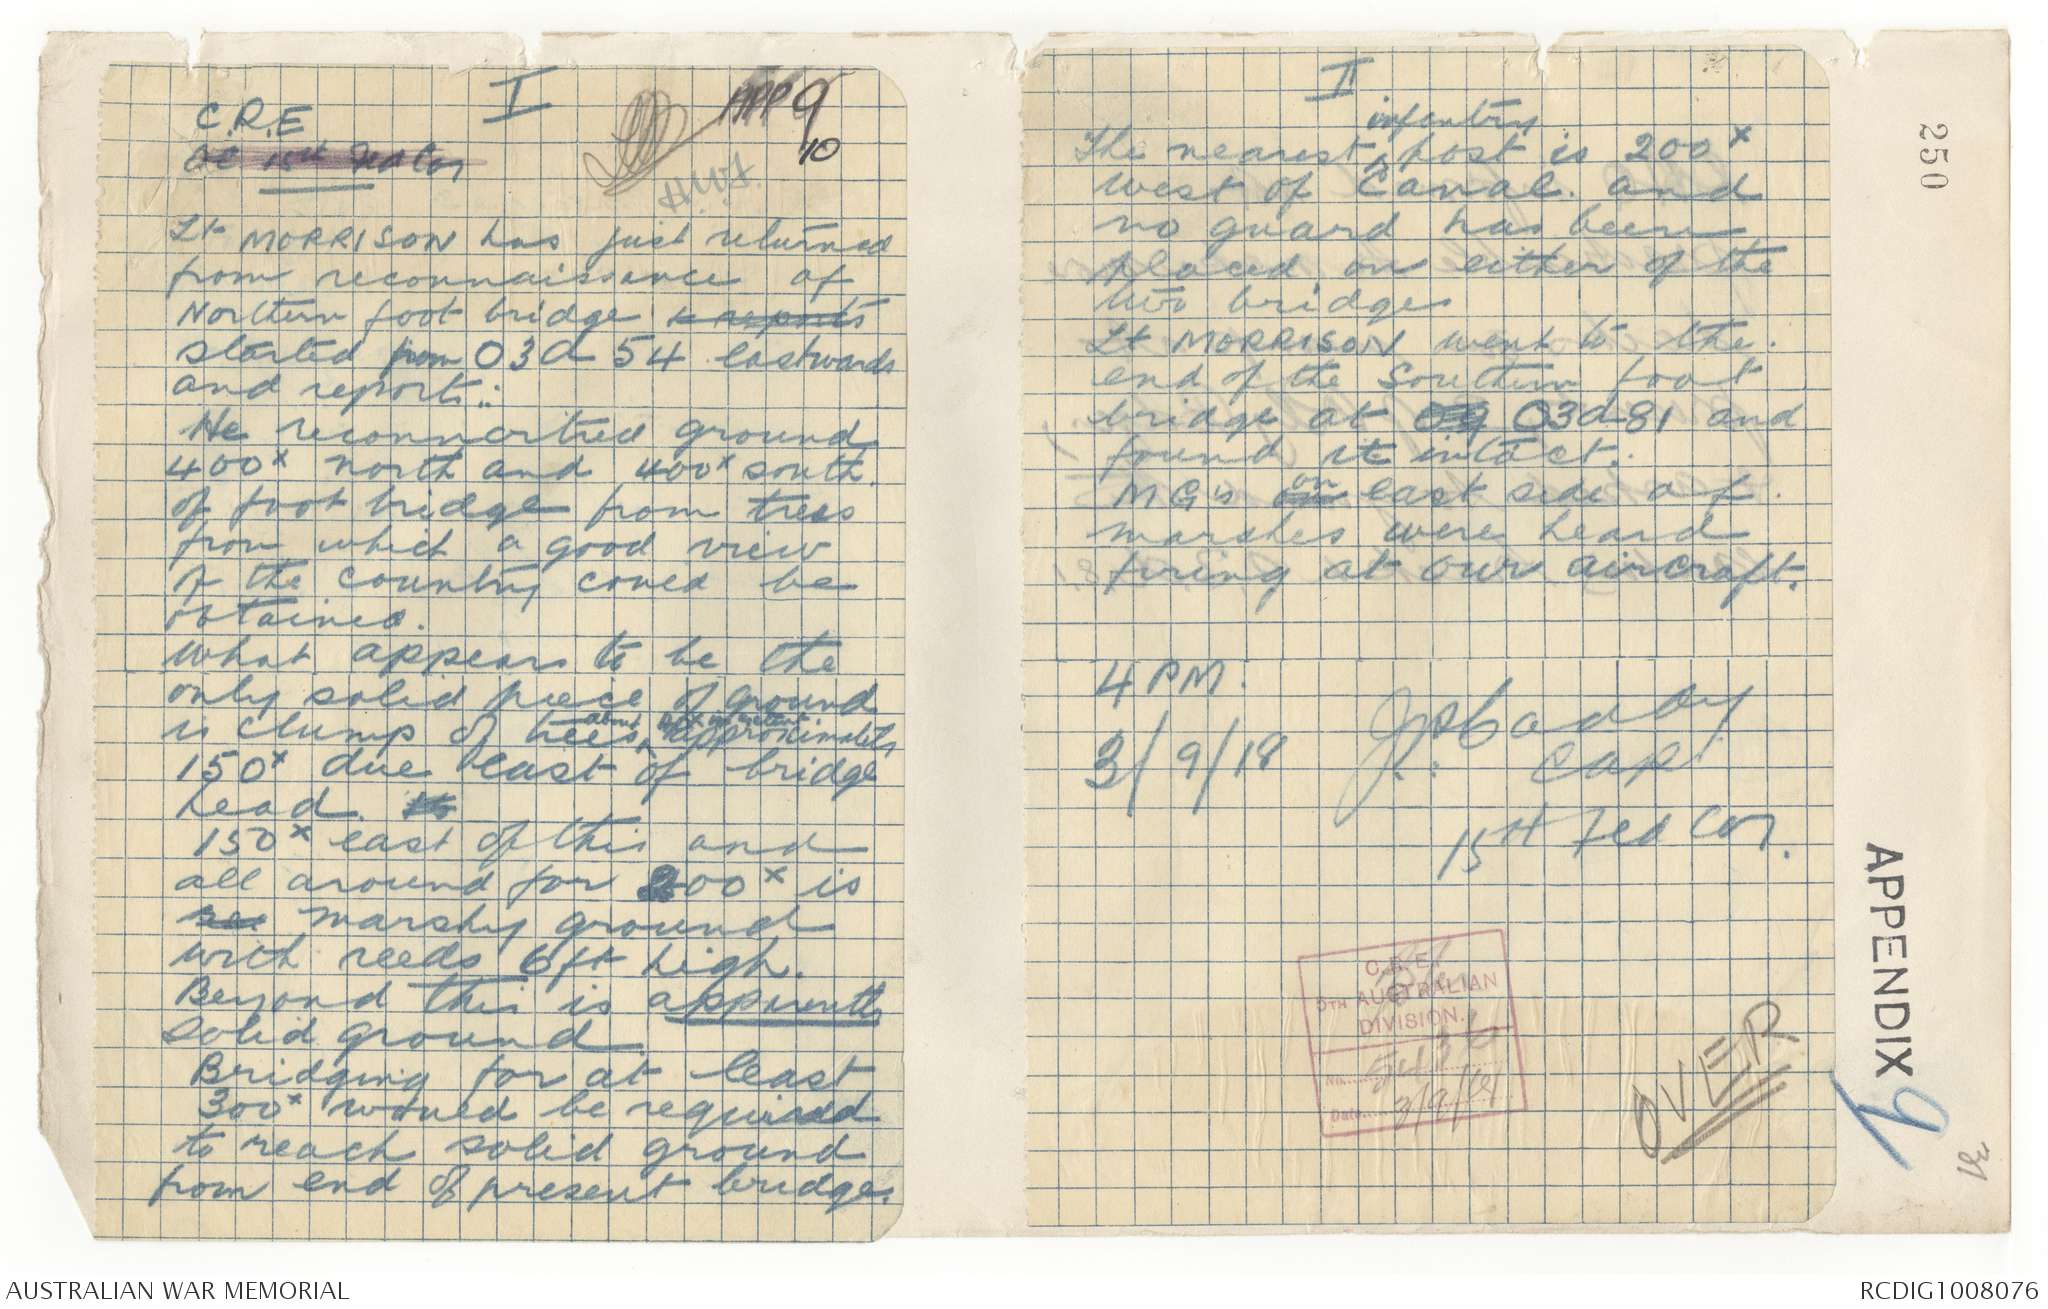 I
APP 9
10
C.R.E.
OC 15th Fld Coy
Lt MORRISON has just returned
from reconnaissance of
Northern foot bridge & reports
started from O3d 54 eastwards
and reports:-
He reconnoitred ground
400x north and 400x south.
of foot bridge from trees
from which a good view
of the country could be
obtained.
What appears to be the
only solid piece of ground
is clump of trees about approximately
150x due east of bridge
head.
150x east of this and
all around for 200x is
marshy ground
with reeds 6ft high.
Beyond this is apparently
solid ground.
Bridging for at least
300x would be required
to reach solid ground
from end of present bridge.
II
infantry
The nearest post is 200x
west of Canal. and
no guard has been
placed on either of the
two bridges
Lt MORRISON went to the.
end of the Southern foot
bridge at O3d 81 and
found it intact.
MG's on east side of.
marshes were heard
firing at our aircraft.
4 PM.
3/9/18
Capt
15th Fld Coy.
C.R.E.
5TH AUSTRALIAN
DIVISION.
No.
Date 3/9/18
OVER
250
APPENDIX 9
AUSTRALIAN WAR MEMORIAL
RCDIG1008076